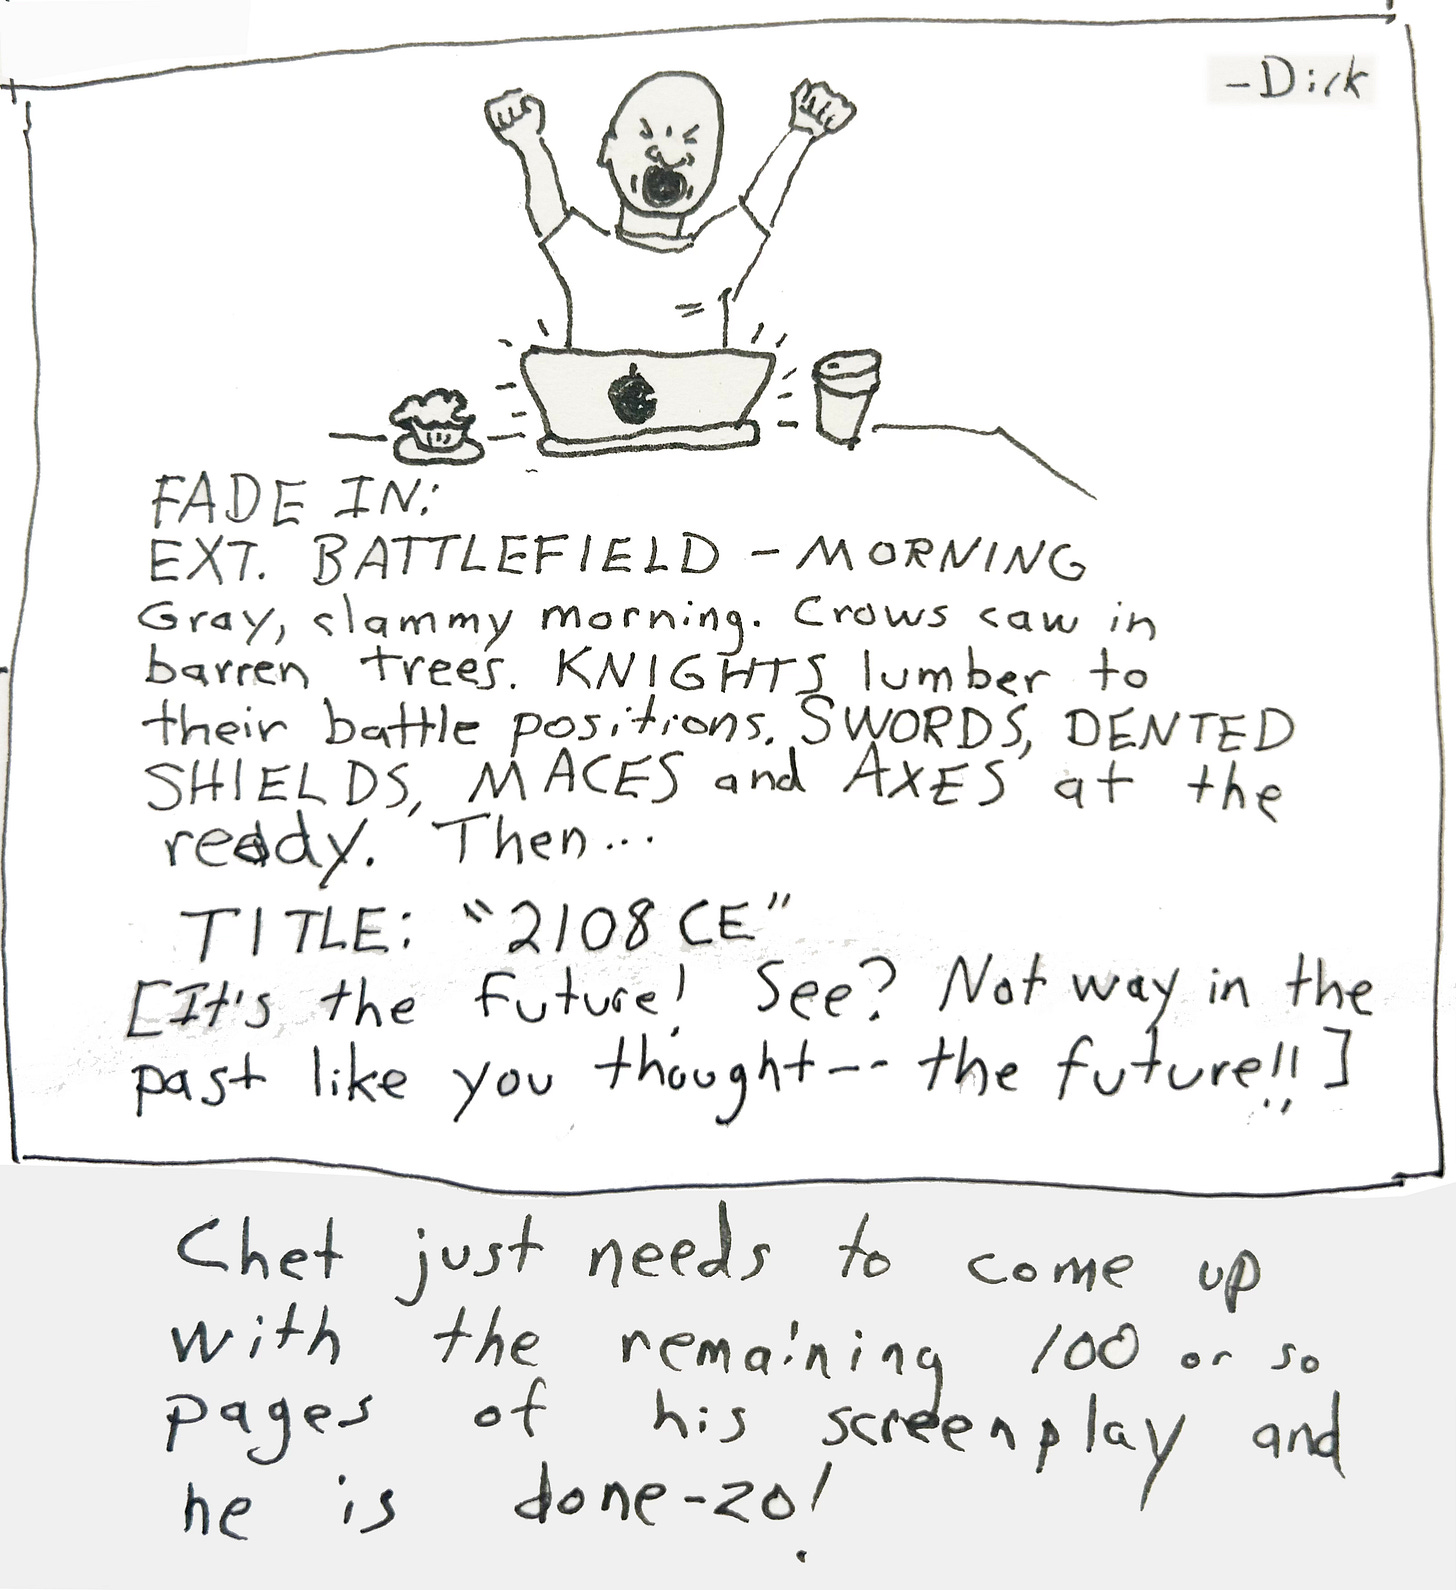 -Dick
FADE IN:
EXT. BATTLEFIELD - MORNING
Gray, clammy morning. Crows caw in
barren trees. KNIGHTS lumber to
their battle positions. SWORDS, DENTED
SHIELDS, MACES and AXES at the
ready. Then...
TITLE: "2108 CE"
[It's the future! See? Not way in the
past like you thought-- the future!!]
Chet just needs to come up
with the remaining 100 or so
pages of his screenplay and
he is done-zo!